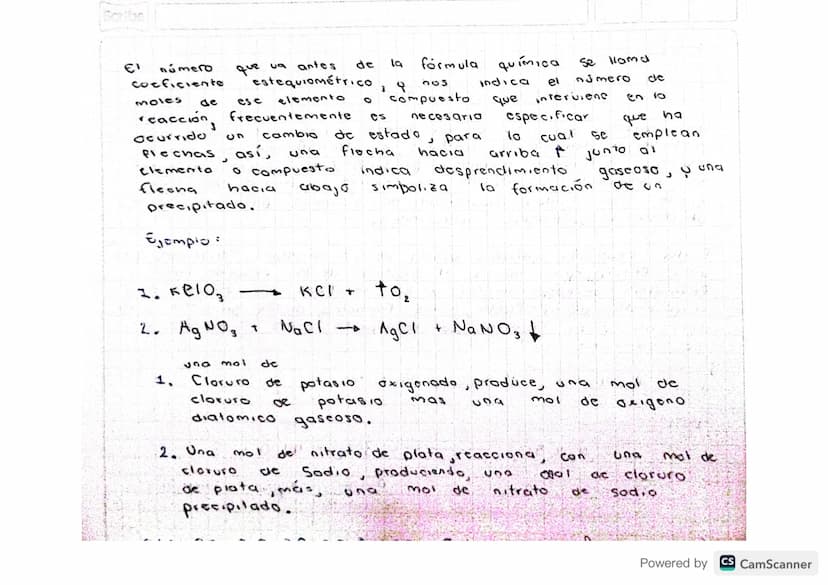 Scribe
El número que va antes de la fórmula química se llama
coeficiente estequiométrico, y nos indica el número de
moles de ese elemento o compuesto que interviene en la
reacción, frecuentemente es necesario especificar que ha
ocurrido un cambio de estado, para lo cual se emplean
flechas, así, una flecha hacia arriba ↑ junto al
elemento o compuesto indica desprendimiento gaseoso, y una
flecha hacia abajo simboliza la formación de un
precipitado.
Ejemplo:
1. KClO₃ → KCl + ↑O₂
2. AgNO₃ + NaCl → AgCl + NaNO₃↓
una mol de
1. Cloruro de potasio oxigenado, produce, una mol de
cloruro de potasio mas una mol de oxigeno
diatomico gaseoso.
2. Una mol de nitrato de plata, reacciona, con una mol de
cloruro de Sodio, produciendo, una mol de cloruro
de plata, más, una mol de nitrato de sodio
precipitado.
Powered by CS CamScanner